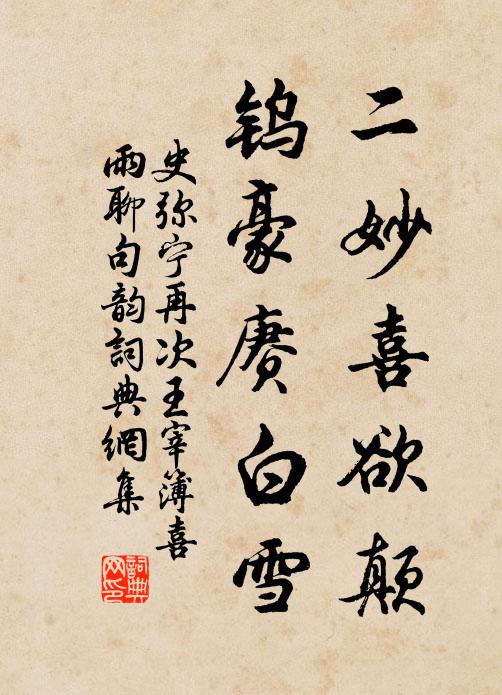 二妙喜欲颠
钨豪赓白雪
史弥宁再次王宰簿喜
雨聊句韵詞典網集
詞典
网印